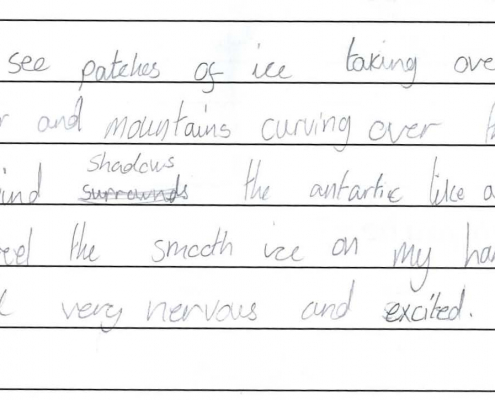 see patches of ice taking ove
r and mountains curving over
Shadows
ind surrownds the antartic like a
eel the smooth ice on my ha
very nervous and excited.